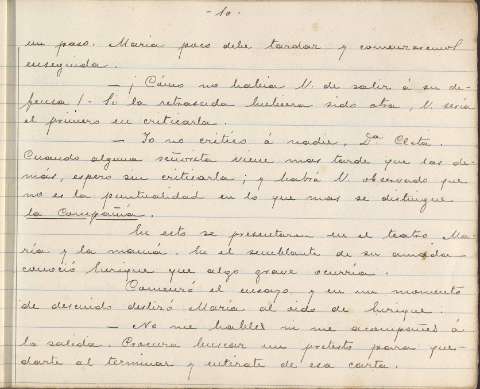 - 10 -
un paso. Maria poco debe tardar y comenzaremos
enseguida.
— ¡Cómo no habia V. de salir á su de-
fensa! Si la retrasada hubiera sido otra, V. seria
el primero en criticarla.
— Yo no critico á nadie, Dª Cleta.
Cuando alguna señorita viene mas tarde que las de-
más, espero sin criticarla; y habrá V. observado que
no es la puntualidad en lo que mas se distingue
la Compañía.
En esto se presentaron en el teatro Ma-
ría y la mamá. En el semblante de su amada
conoció Enrique que algo grave ocurría.
Comenzó el ensayo y en un momento
de descuido deslizó María al oido de Enrique.
— No me hables ni me acompañes á
la salida. Procura buscar un pretesto para que-
darte al terminar y entérate de esa carta.